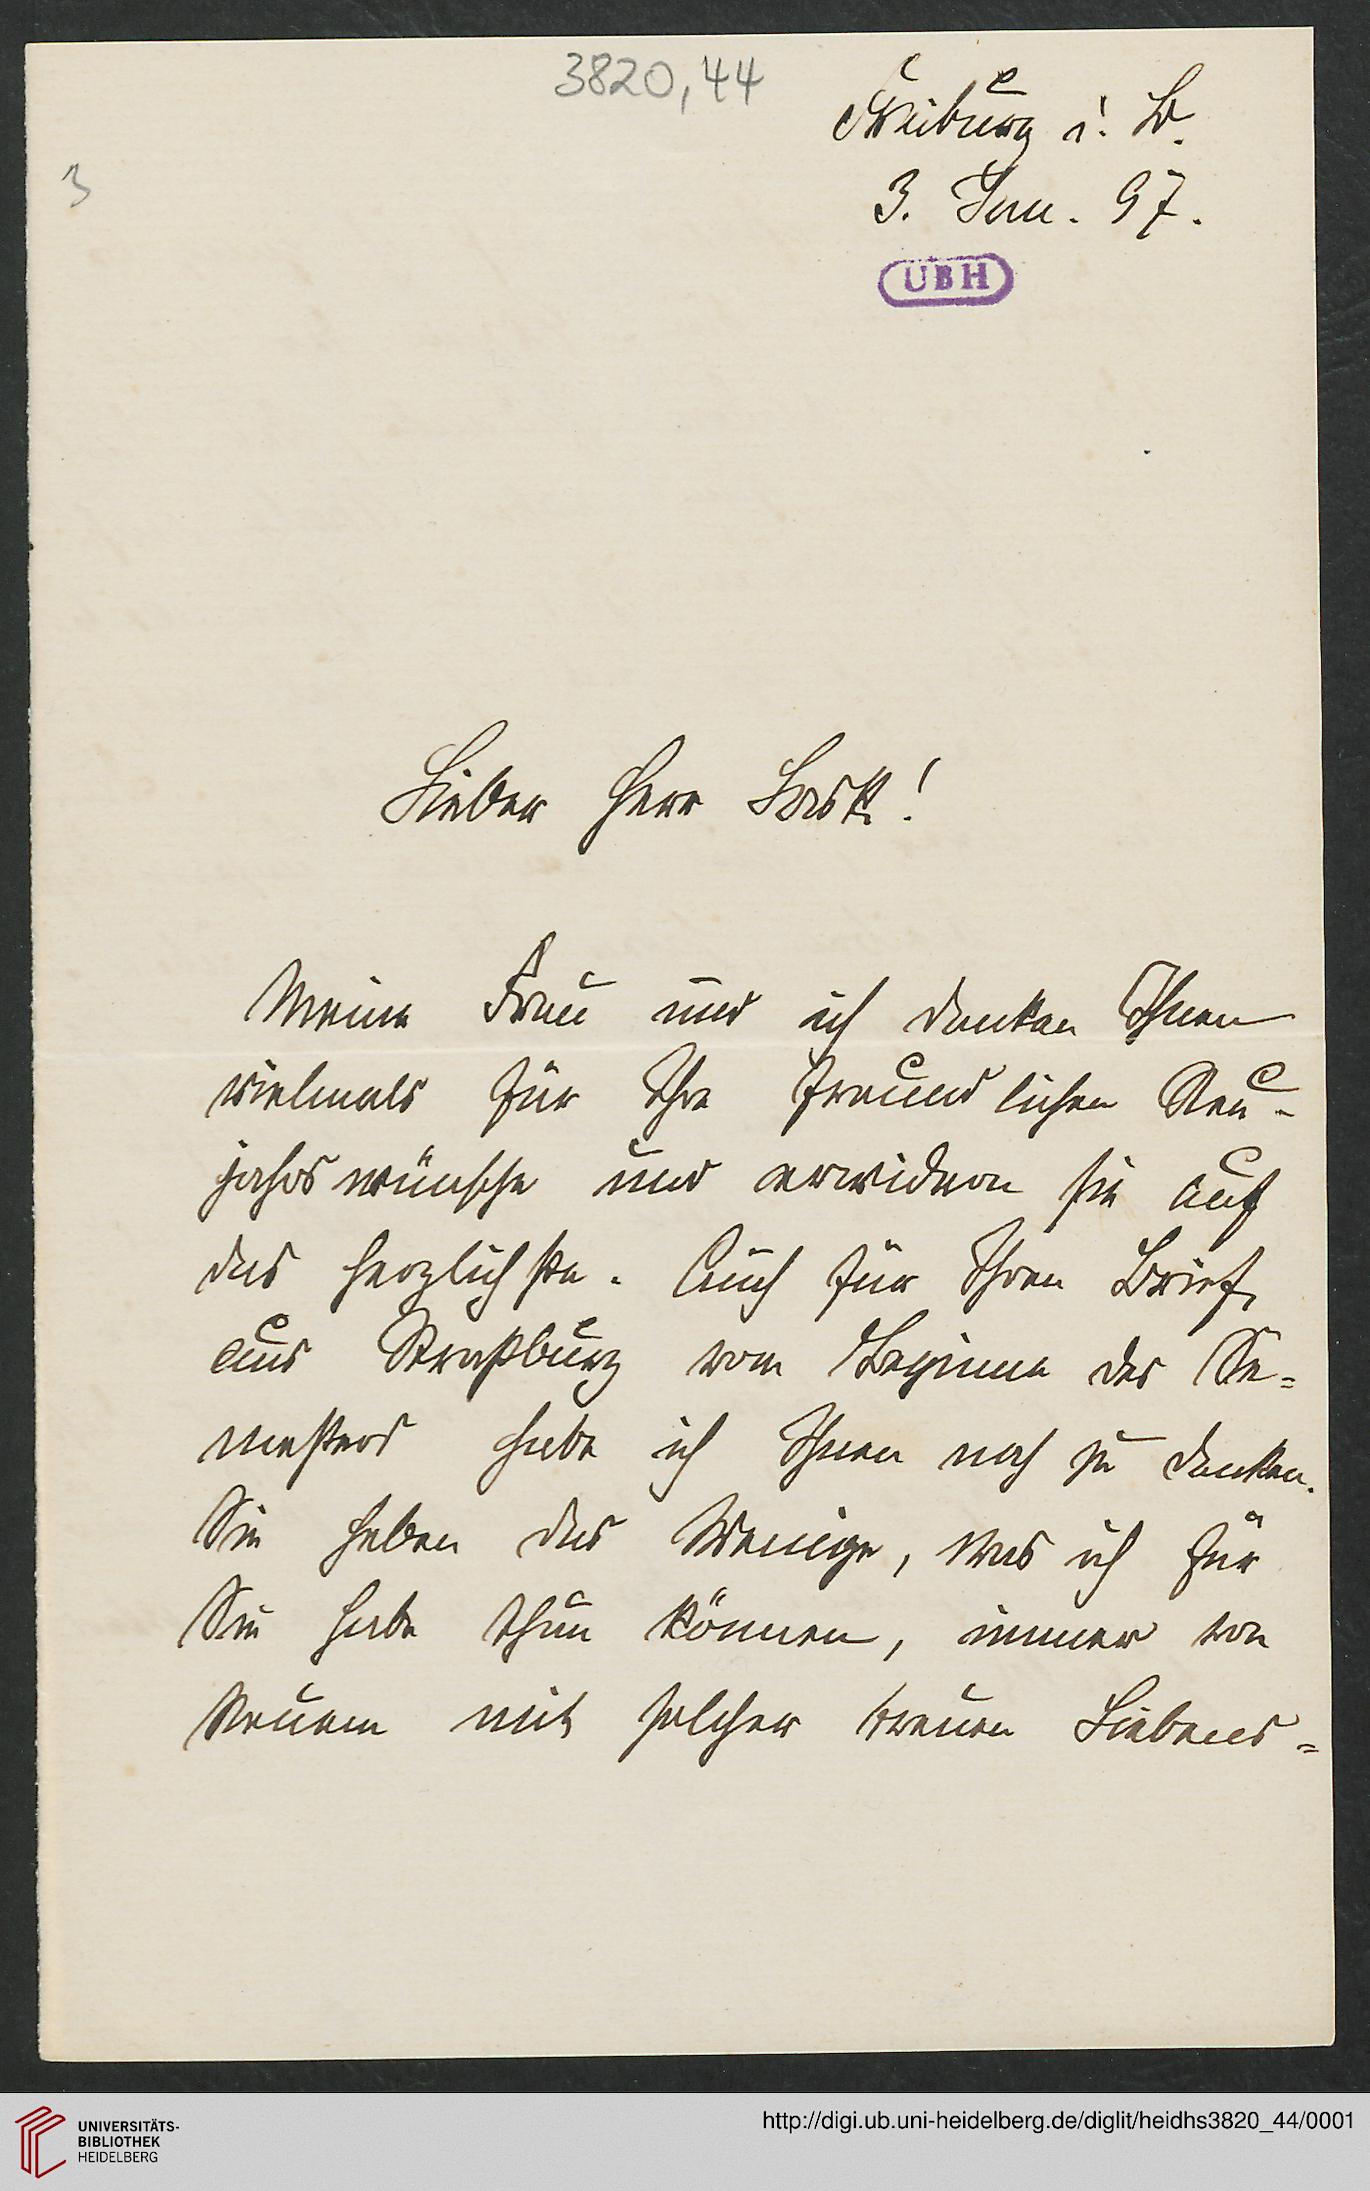 3820,44
Freiburg i. B.
3
3. Jan. 97.
UBH
Lieber Herr Lask!
Meine Frau und ich danken Ihnen
vielmals für Ihre freundlichen Neu-
jahrswünsche und erwidern sie auf
das herzlichste. Auch für Ihren Brief
aus Straßburg vom Beginne des Se=
mesters habe ich Ihnen noch zu danken.
Sie haben das Wenige, was ich für
Sie habe thun können, immer von
Neuem mit solcher treuen Liebens=
UNIVERSITÄTS-
BIBLIOTHEK
HEIDELBERG
http://digi.ub.uni-heidelberg.de/diglit/heidhs3820_44/0001